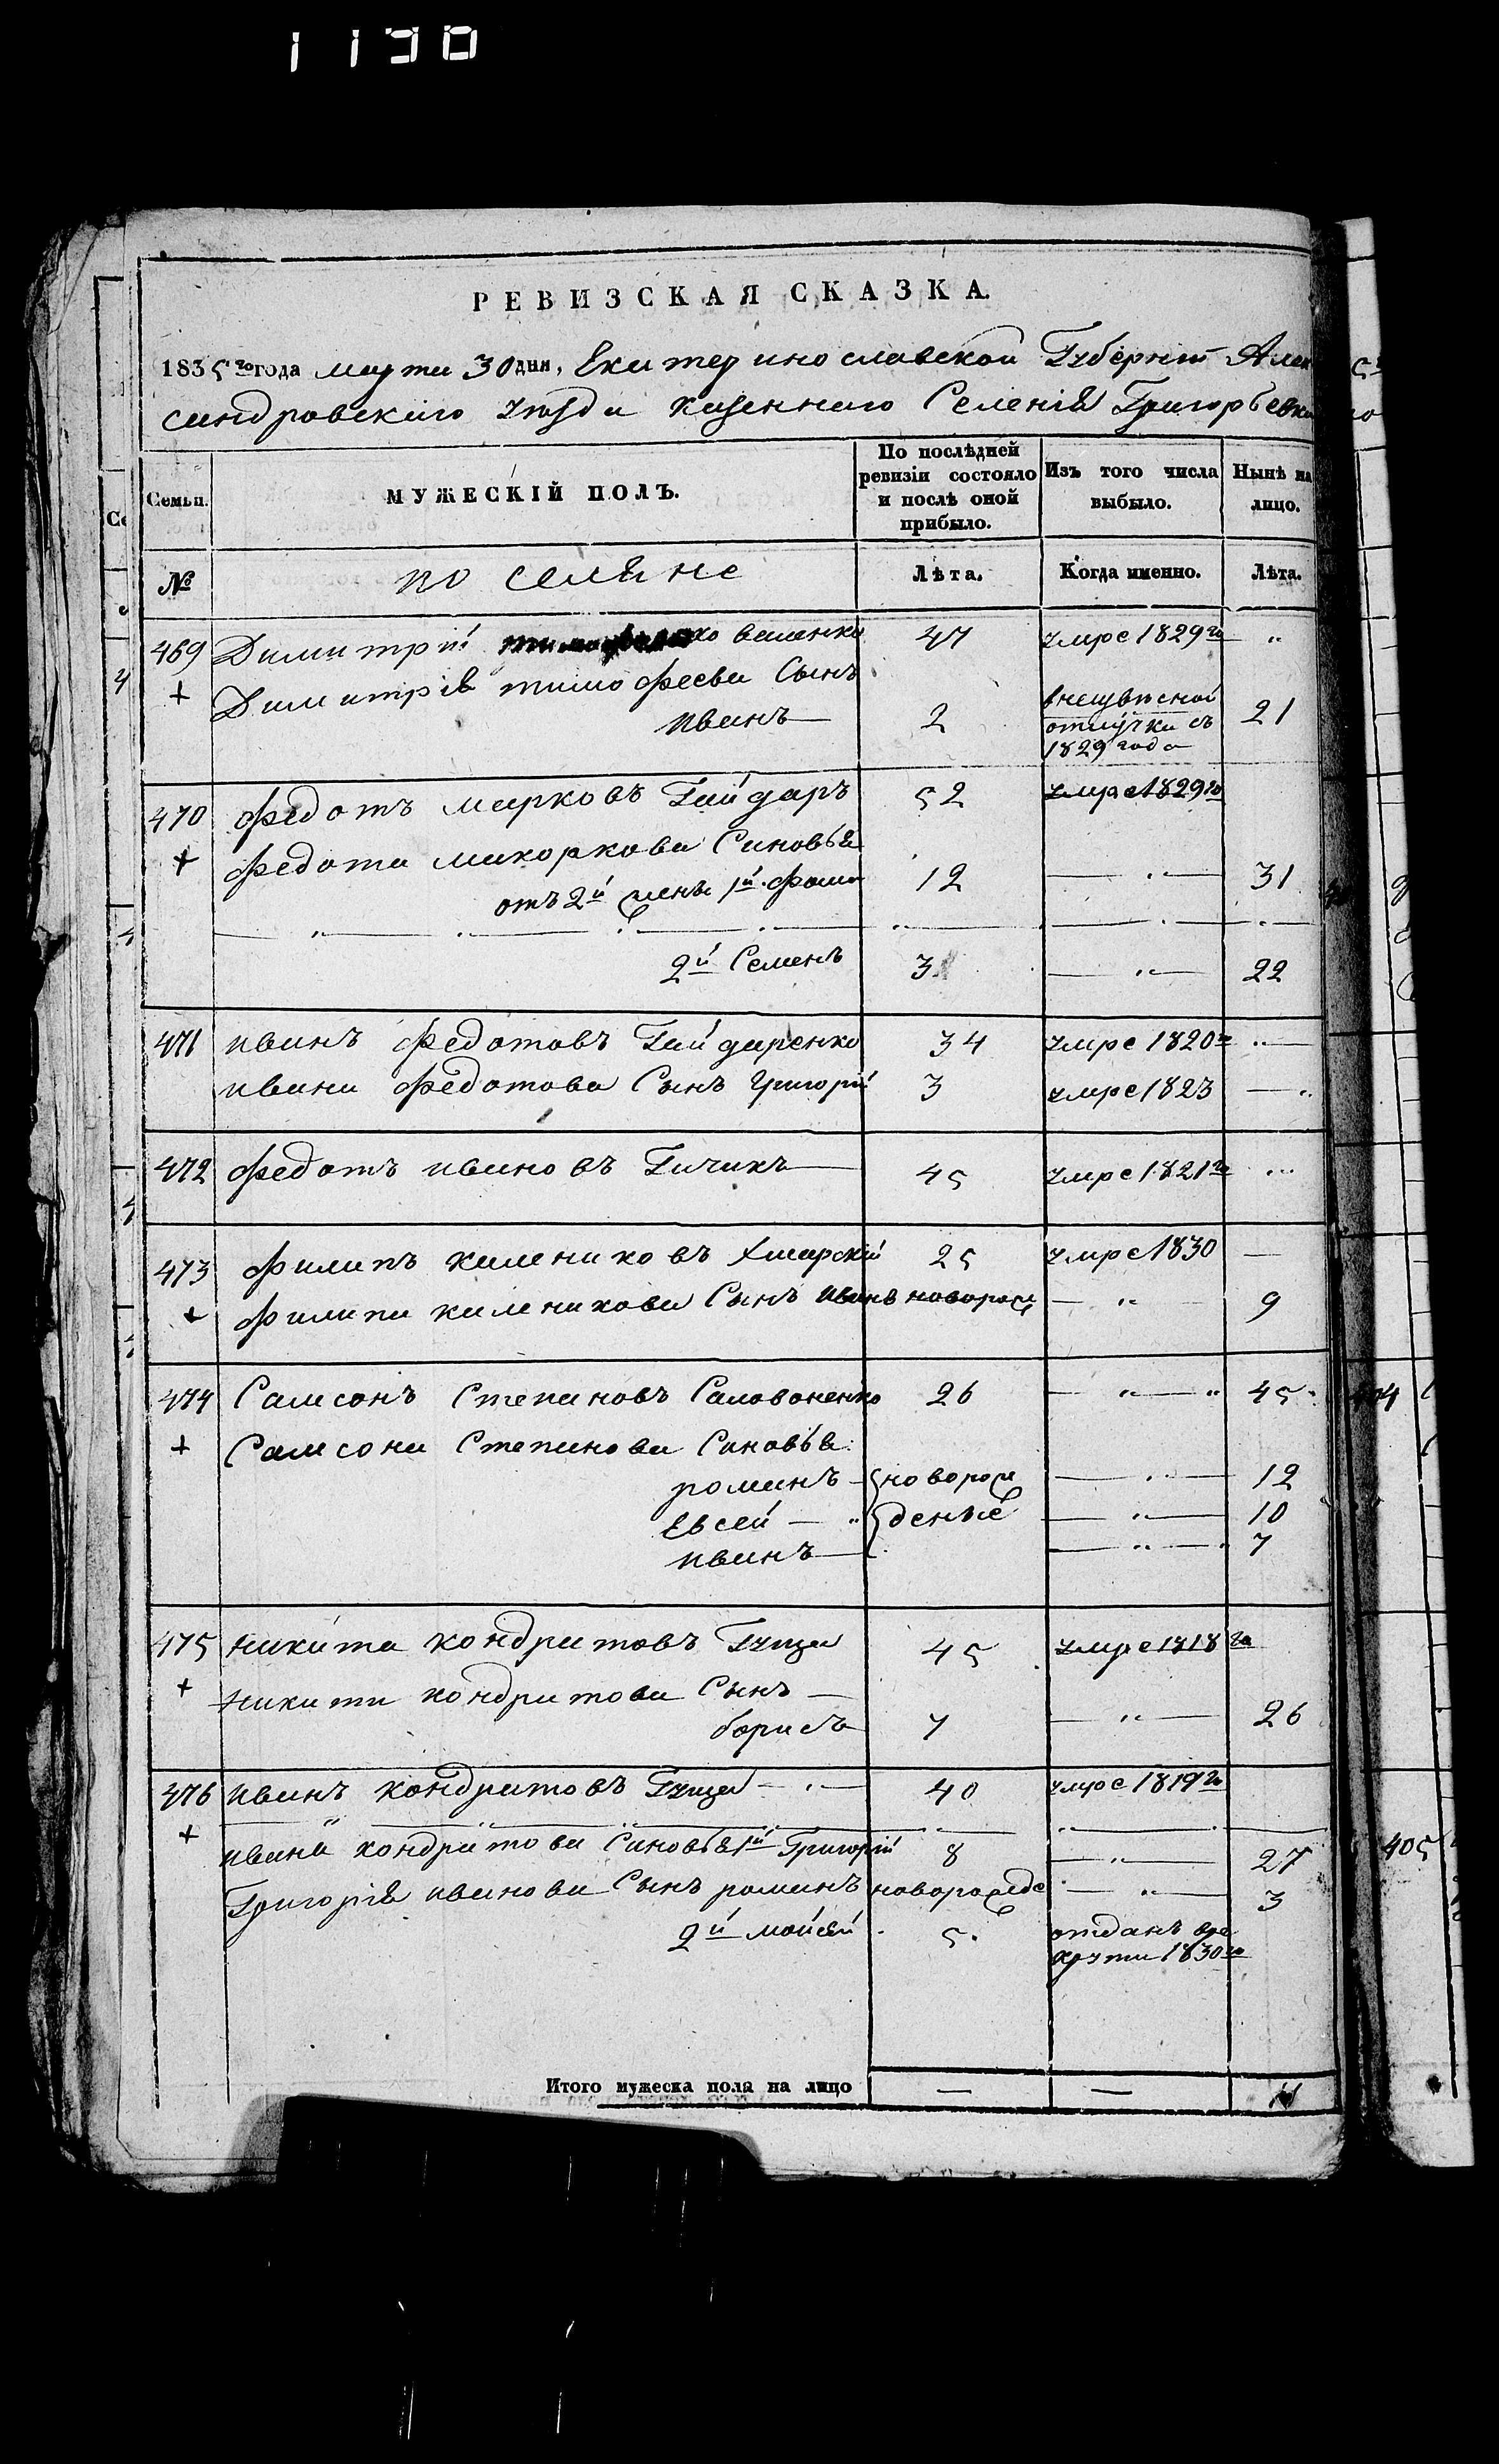 1130
РЕВИЗСКАЯ СКАЗКА.
1835го года марта 30 дня, Екатеринославской Губерніи Алек
сандровскаго уѣзда казеннаго Селенія Григорьевки
Семьи.
МУЖЕСКІЙ ПОЛЪ.
По послѣдней ревизіи состояло и послѣ оной прибыло.
Изъ того числа выбыло.
Нынѣ на лицо.
№
поселяне
Лѣта.
Когда именно.
Лѣта.
469 Димитрій 47 умре 1829го "
+ Димитрія тимофеева Сынъ
иванъ 2 отлучки съ 1829 года 21
470 Федотъ марковъ Гайдаръ 52 умре 1829го
+ Федота Синовья
отъ 2й жены 1й Фома 12 — " — 31
2й Семенъ 3 — " — 22
471 иванъ Федотовъ Гайдаренко 34 умре 1820го " —
ивана Федотова Сынъ Григорій 3 умре 1823 — "
472 Федотъ ивановъ Гичикъ 45 умре 1821го
473 Филипъ калениковъ Хмарскій 25 умре 1830 —
+ Филипа каленикова Сынъ иванъ новорож — " — 9
474 Самсонъ Степановъ Саловоненко 26 — " — " 45
+ Самсона Степанова Синовья
романъ новорож — " — 12
Евсей — " деные — " — 10
иванъ — " — 7
475 никита кондратовъ Гуща 45 умре 1818го
+ никиты кондратова Сынъ —
борисъ 7 — " — 26
476 иванъ кондратовъ Гуща 40 умре 1819го
+ ивана кондратова Синовья 1й Григорій 8 — " — 27
Григорія иванова Сынъ романъ новорожде — " — 3
2й мойсей 5 отданъ вре
круты 1830го
Итого мужеска пола на лицо — —
404
405